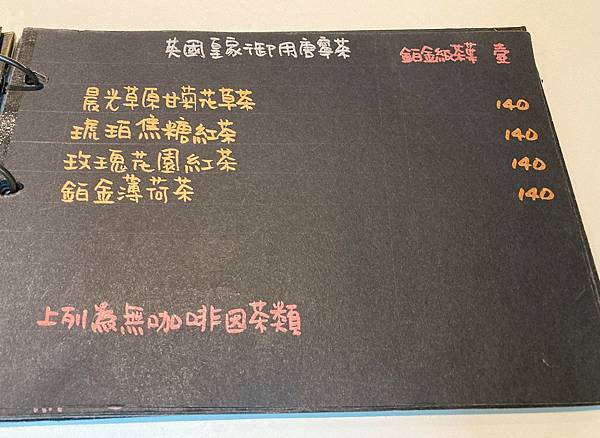 英國皇家御用唐寧茶 鉑金級茶葉 壺
晨光草原甘菊花草茶 140
琥珀焦糖紅茶 140
玫瑰花園紅茶 140
鉑金薄荷茶 140
上列為無咖啡因茶類